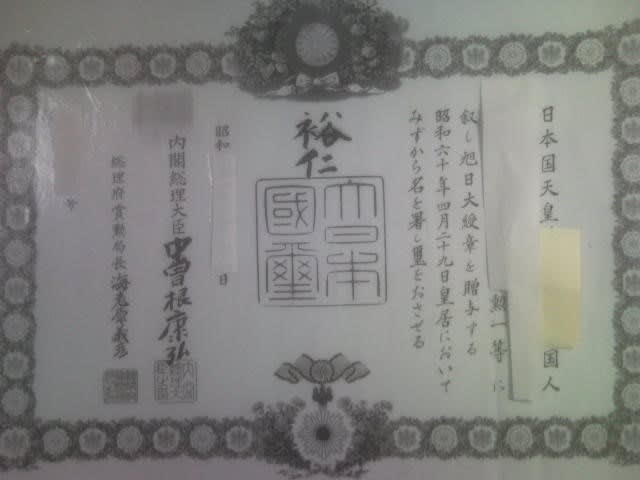 日本国天皇 国人
勲一等に
叙し旭日大綬章を贈与する
昭和六十年四月二十九日皇居において
みずから名を署し璽をおさせる
裕仁
大日本
國璽
昭和 日
内閣総理大臣 中曽根康弘
総理府賞勲局長 海老原義彦
号